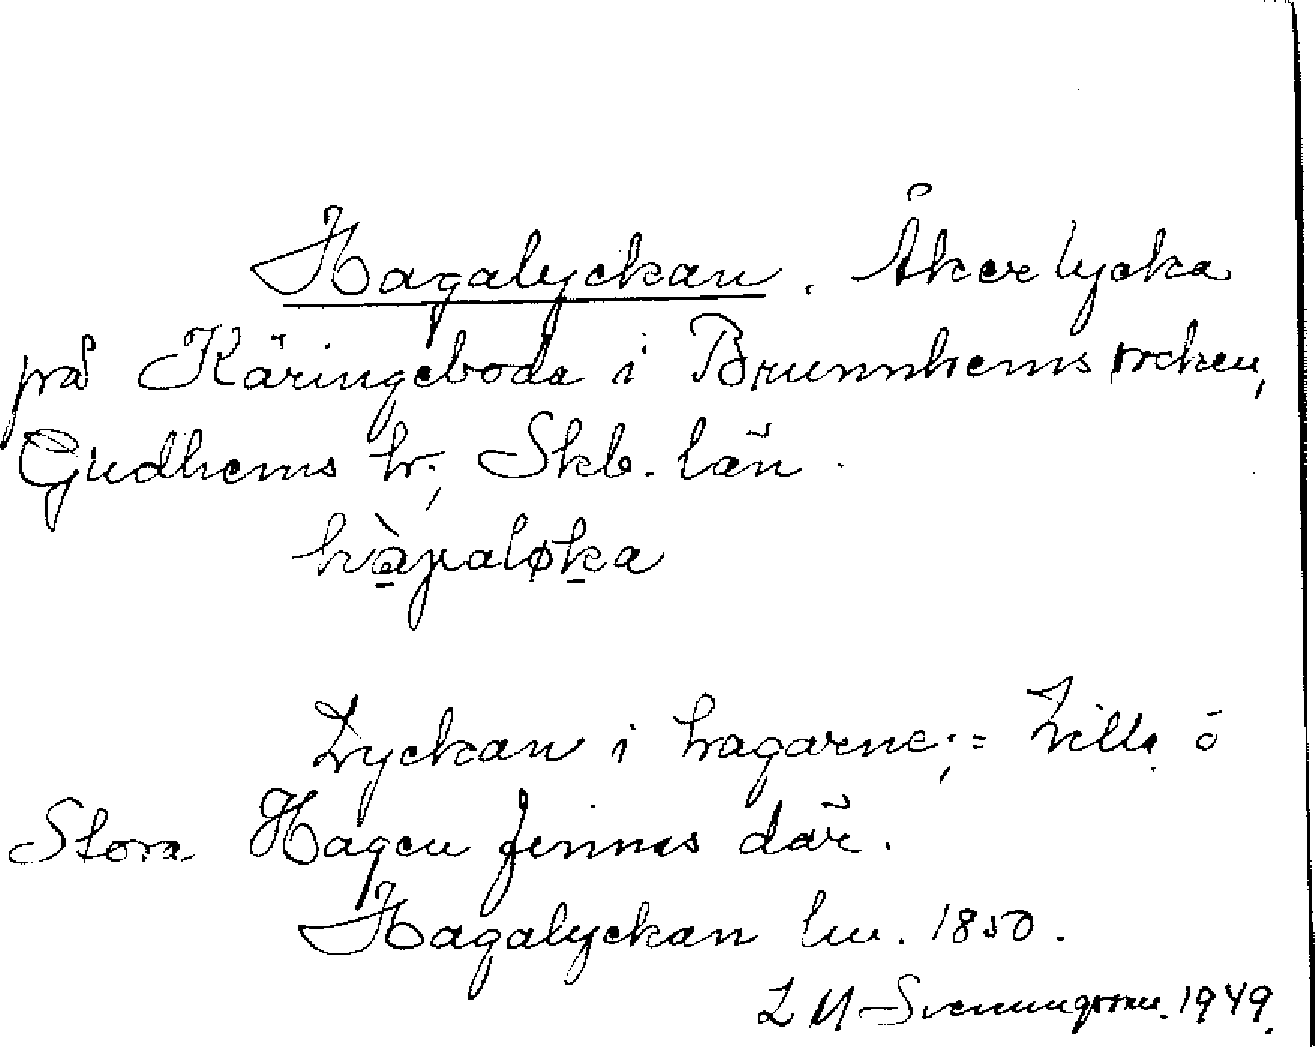 Hagalyckan. Åkerlycka
på Käringeboda i Brunnhems socken,
Gudhems hr, Skb. län.
hàgaløka
Lyckan i hagarne; = Lilla o
Stora Hagen finnes där.
Hagalyckan lm. 1850.
L M Svenungsson. 1949.